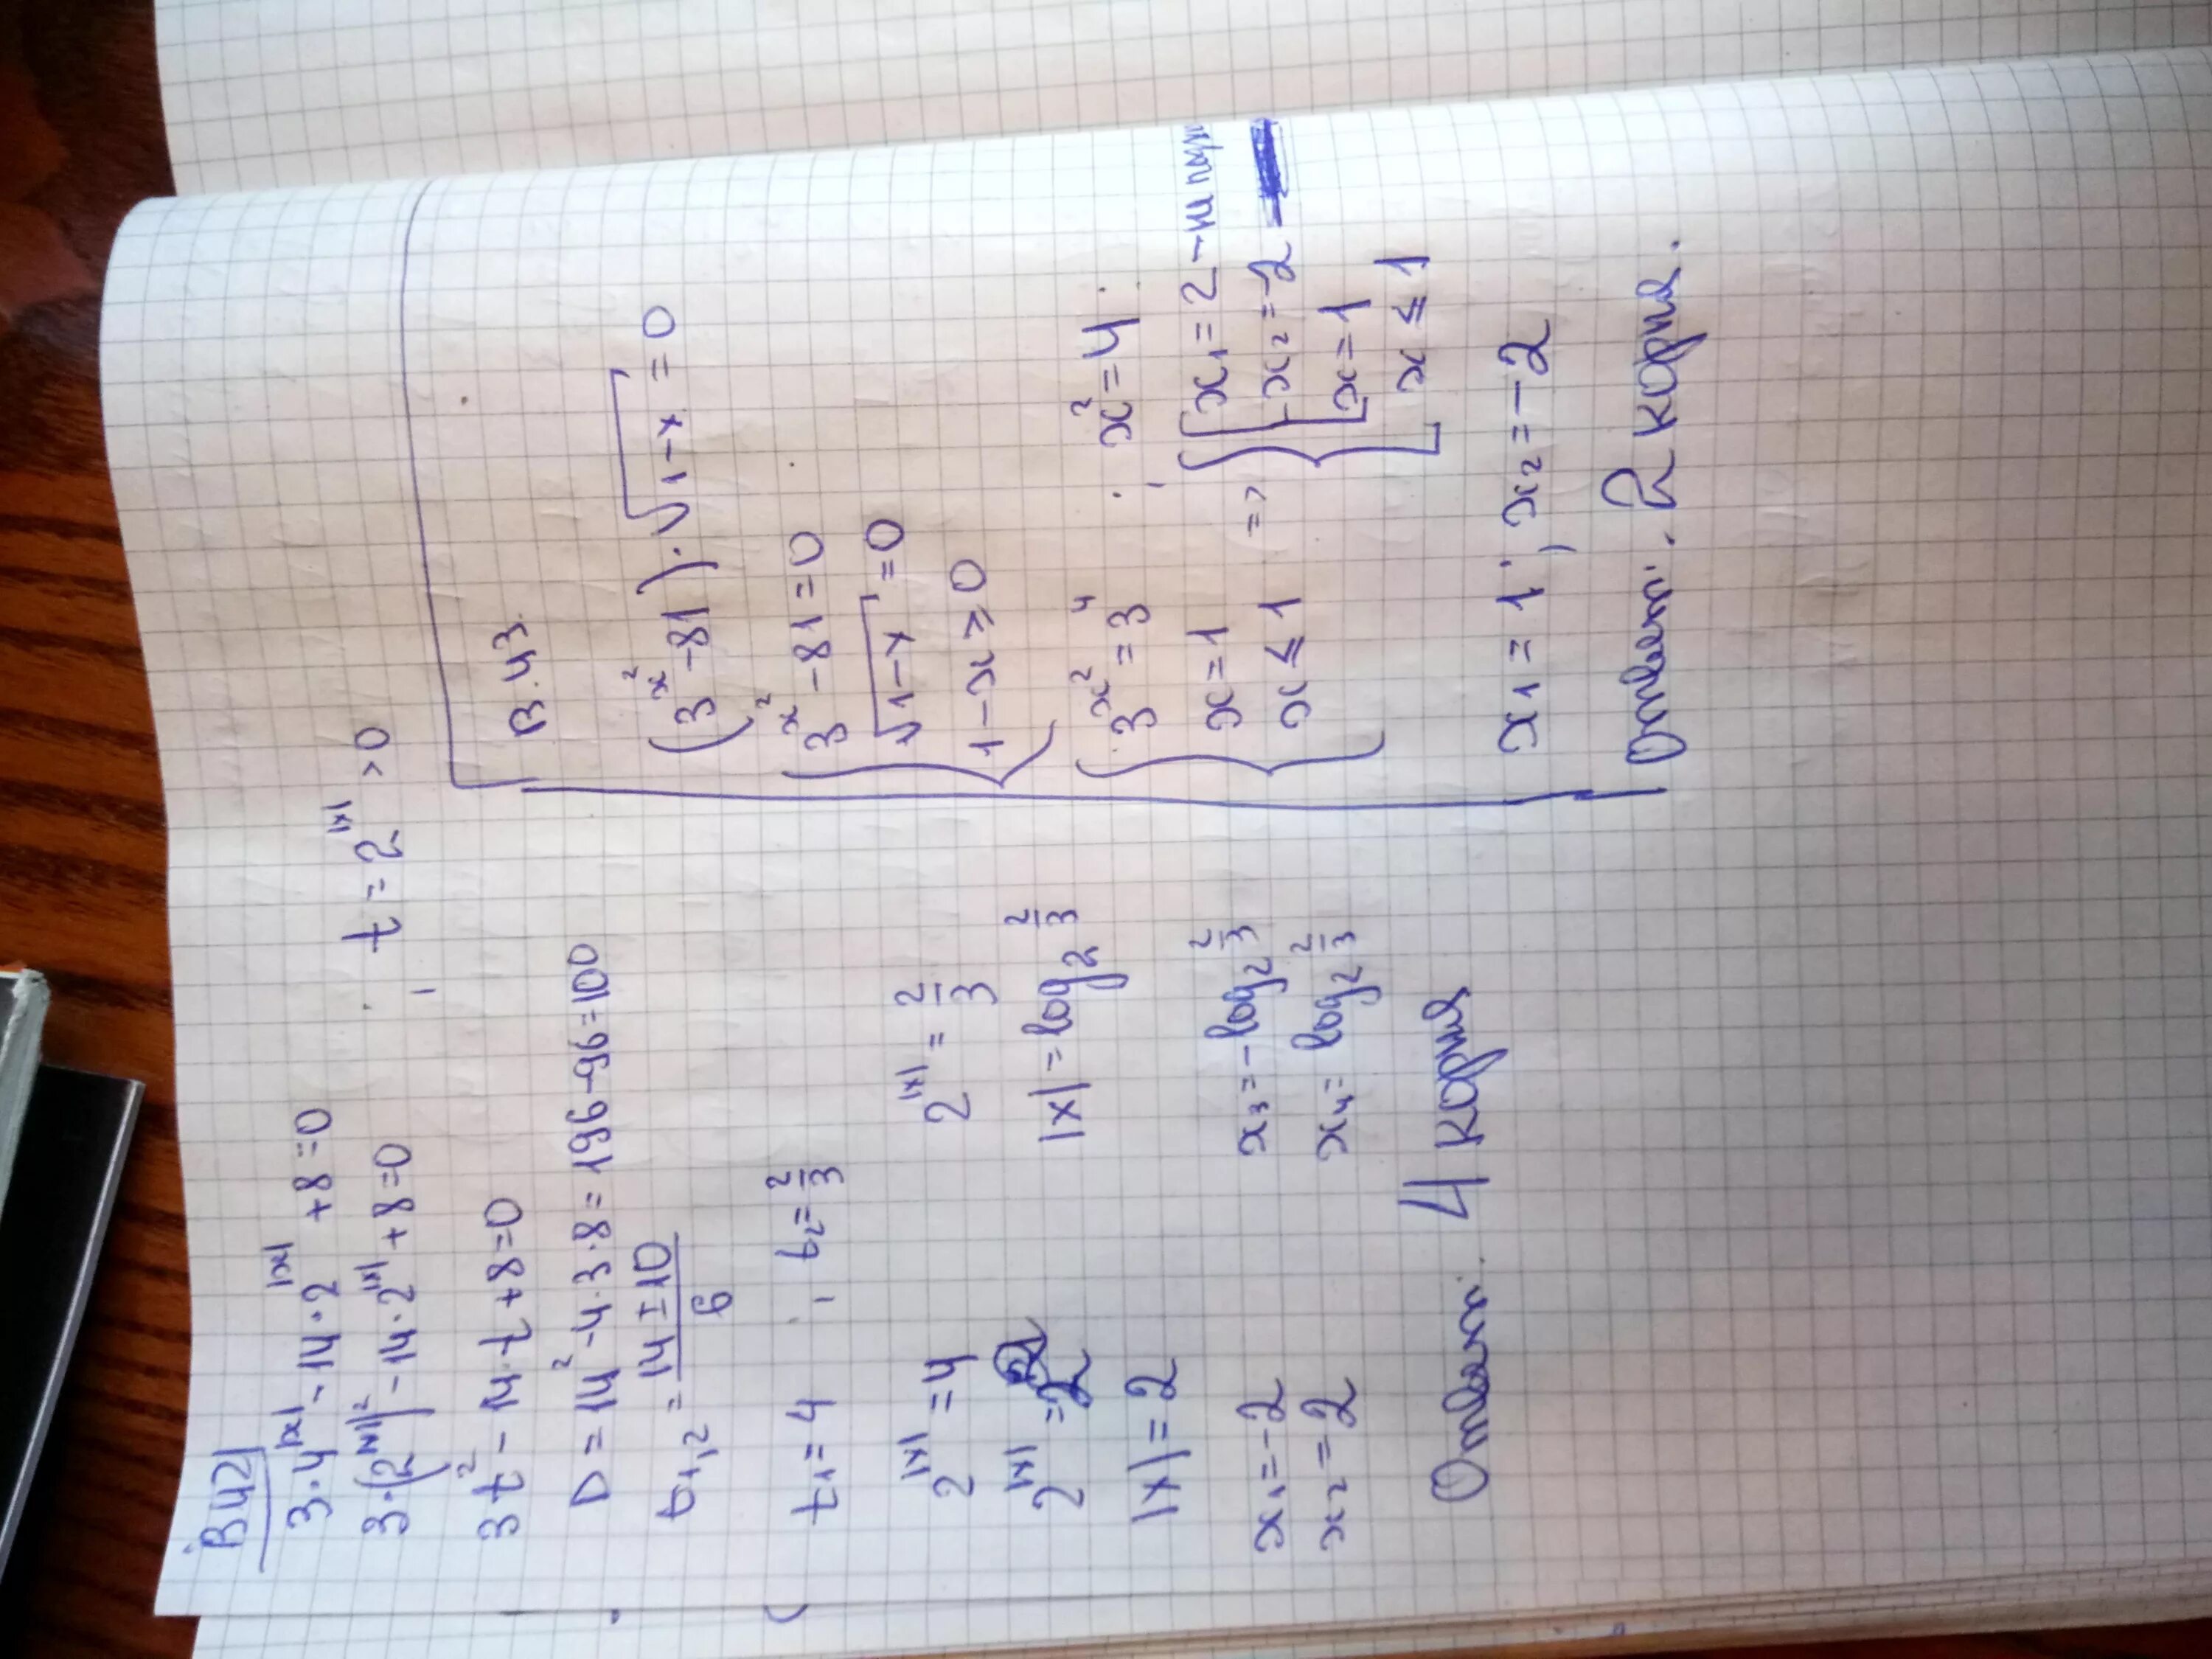 В42
3·4^|x| - 14·2^|x| + 8 = 0
3·(2^|x|)² - 14·2^|x| + 8 = 0 , t = 2^|x| > 0
3t² - 14·t + 8 = 0
D = 14² - 4·3·8 = 196 - 96 = 100
t₁,₂ = (14 ± 10)/6
t₁ = 4 , t₂ = 2/3
2^|x| = 4
2^|x| = 2²
|x| = 2
x₁ = -2
x₂ = 2
2^|x| = 2/3
|x| = log₂ 2/3
x₃ = -log₂ 2/3
x₄ = log₂ 2/3
Ответ: 4 корня
В.43
(3^x² - 81)·√1-x = 0
{ 3^x² - 81 = 0
√1-x = 0
1 - x ≥ 0
{ 3^x² = 3⁴ , x² = 4
x = 1
x ≤ 1
=> { [ x₁ = 2 - не
x₂ = -2
x = 1
x ≤ 1
x₁ = 1 ; x₂ = -2
Ответ: 2 корня.